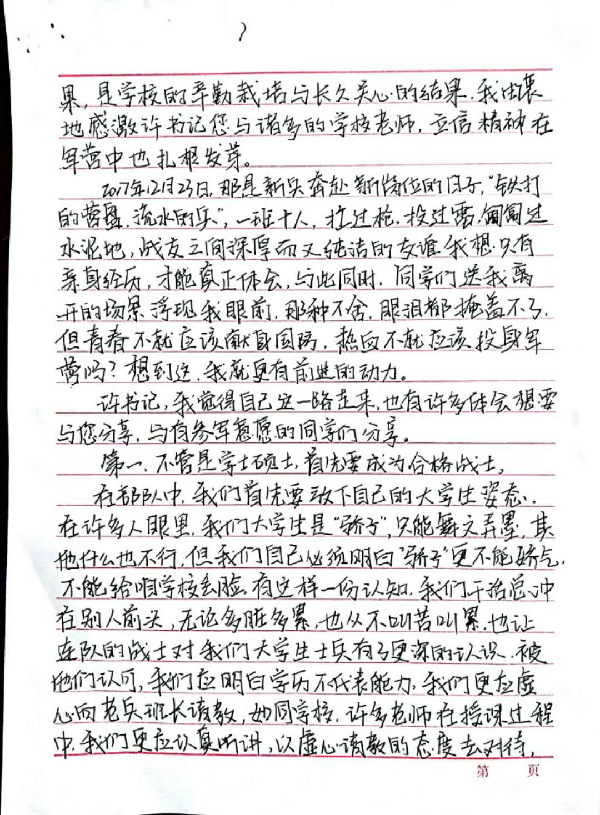 果,是学校的辛勤栽培与长久关心的结果.我由衷
地感激许书记您与诸多的学校老师,立信精神在
军营中也扎根发芽。
2017年12月23日,那是新兵奔赴新岗位的日子,“铁打
的营盘,流水的兵”,一班十人,拉过枪.投过雷.匍匐过
水泥地,战友之间深厚而又纯洁的友谊.我想.只有
亲身经历,才能真正体会,与此同时.同学们送我离
开的场景浮现我眼前,那种不舍,眼泪都掩盖不了.
但青春不就应该献身国防,热血不就应该投身军
营吗?想到这.我就更有前进的动力。
许书记,我觉得自己这一路走来,也有许多体会想要
与您分享,与有参军意愿的同学们分享。
第一.不管是学士硕士,首先要成为合格战士。
在部队中,我们首先要放下自己的大学生姿态.
在许多人眼里,我们大学生是“骄子”,只能舞文弄墨,其
他什么也不行,但我们自己必须明白“骄子”更不能娇气,
不能给咱学校丢脸.有这样一份认知,我们干活总冲
在别人前头,无论多脏多累,也从不叫苦叫累.也让
连队的战士对我们大学生士兵有了更深的认识.被
他们认可,我们应明白学历不代表能力.我们更应虚
心向老兵班长请教,如同学校.许多老师在授课过程
中.我们更应认真听讲,以虚心请教的态度去对待,
第 页